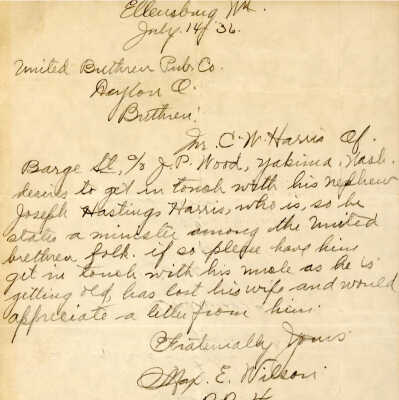 Ellensburg Wn.
July. 14/ 36.
United Brethren Pub. Co.
Dayton O.
Brethren:
Mr. C. W. Harris of
Barge St, c/o J. P. Wood, Yakima, Wash.
desires to get in touch with his nephew
Joseph Hastings Harris, who is, so he
states a minister among the United
brethren folk. if so please have him
get in touch with his uncle as he is
getting old, has lost his wife and would
appreciate a letter from him.
Fraternally Yours
Max. E. Wilson.